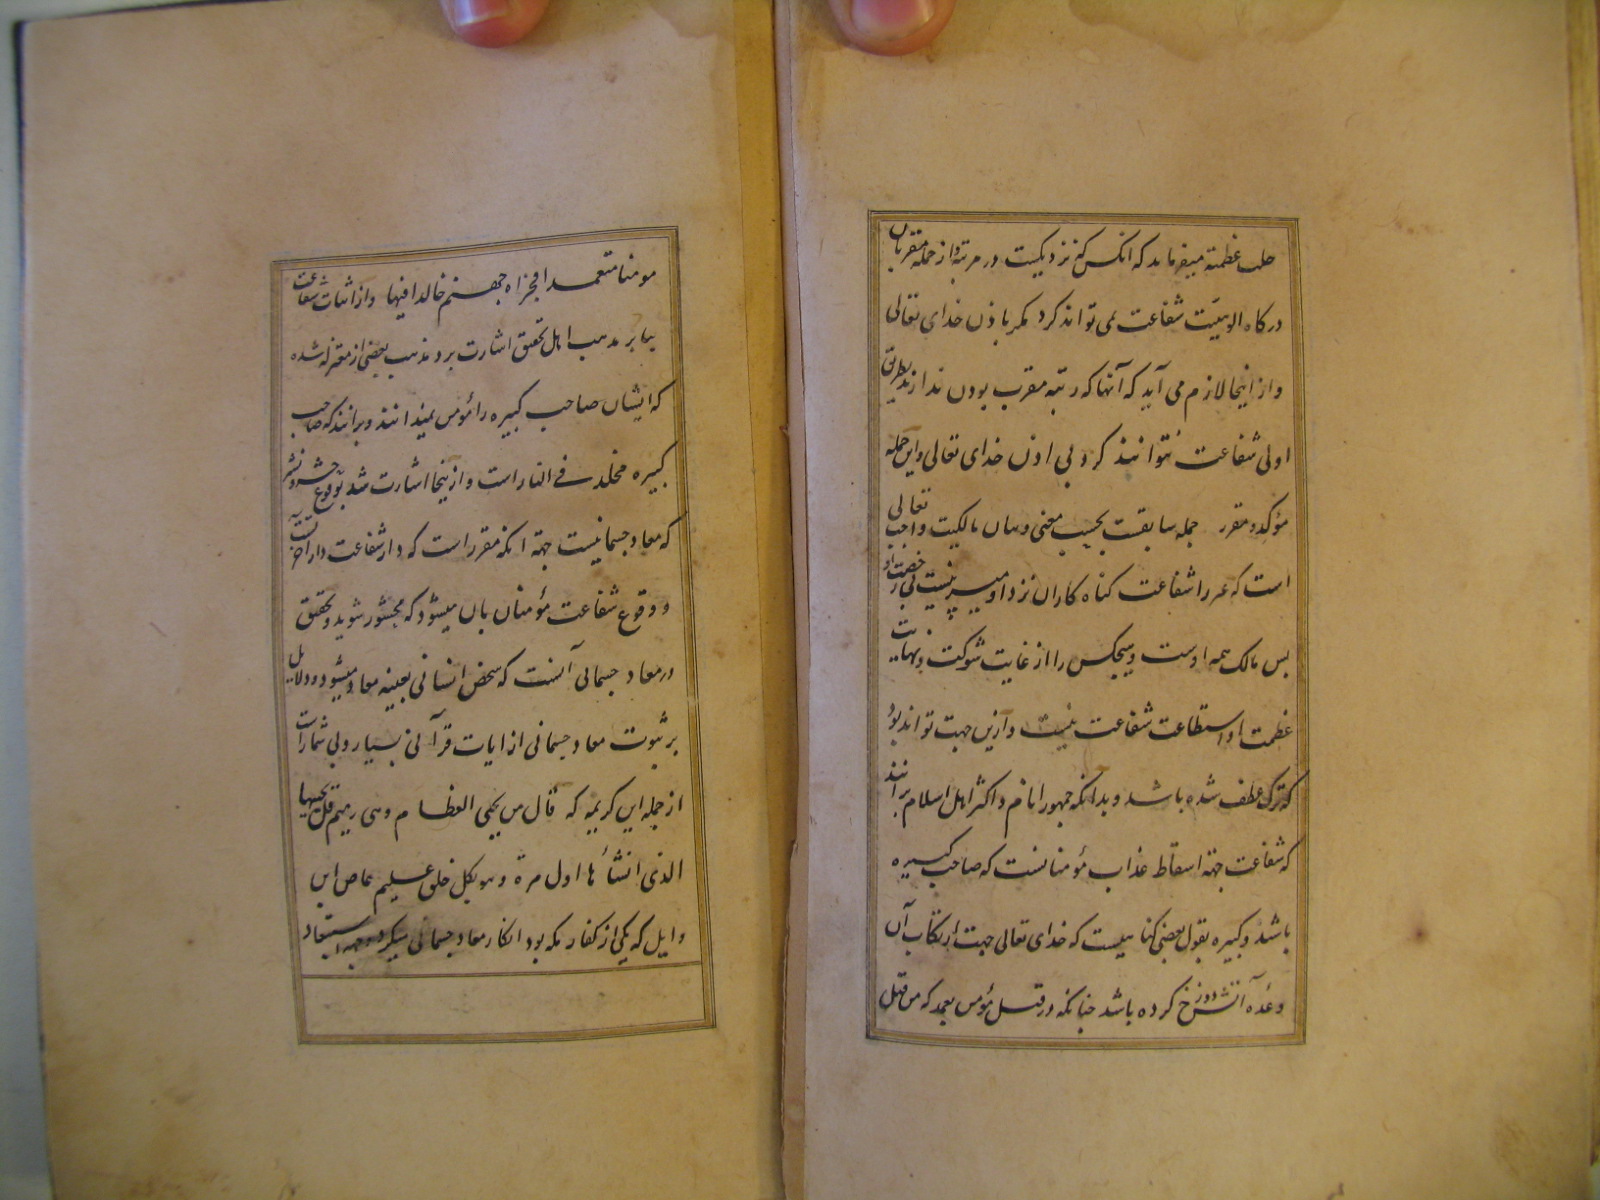 جلت عظمته میفرماید که انکس که نزدیکست در مرتبه و از جمله مقربان
درکاه الوهیت شفاعت نمی تواند کرد مکر باذن خدای تعالی
و از اینجا لازم می آید که آنها که رتبه مقرب بودن ندارند بطریق
اولی شفاعت نتوانند کرد بی اذن خدای تعالی و این جمله
مؤکد و مقرر جمله سابقست بحسب معنی و بیان مالکیت واجب تعالی
است که غیر را شفاعت کناه کاران نزد او میسر نیست بی رخصت او
پس مالک همه اوست و هیچکس را از غایت شوکت و نهایت
عظمت او استطاعت شفاعت نیست و ازین جهت تواند بود
که ترک عطف شده باشد و بدانکه جمهور انام و اکثر اهل اسلام برانند
که شفاعت جهة اسقاط عذاب مؤمنانست که صاحب کبیره
باشند و کبیره بقول بعضی کناهیست که خدای تعالی جهت ارتکاب آن
وعده آتش دوزخ کرده باشد چنانکه در قتل مؤمن بعمد که من قتل
مومنا متعمدا فجزاه جهنم خالدا فیها و از اثبات شفاعت
بنابر مذهب اهل تحقیق اشارت برد مذهب بعضی از معتزله شده
که ایشان صاحب کبیره را مؤمن نمیدانند و برانند که صاحب
کبیره مخلد فی النار است و ازینجا اشارت شد بوقوع حشر و نشر
که معاد جسمانیست جهة انکه مقرر است که دار شفاعت دار اخرتست
و وقوع شفاعت مؤمنان بان میشود که محشور شوند و تحقیق
در معاد جسمانی آنست که شخص انسانی بعینه معاد میشود و دلایل
بر ثبوت معاد جسمانی از ایات قرآنی بسیار و بی شمارات
از جمله این کریمه که قال من یحیی العظام وهی رمیم قل یحییها
الذی انشأ ها اول مرة وهو بکل خلق علیم عاص ابن
وایل که یکی از کفار مکه بود انکار معاد جسمانی میکرد و جهة استبعاد